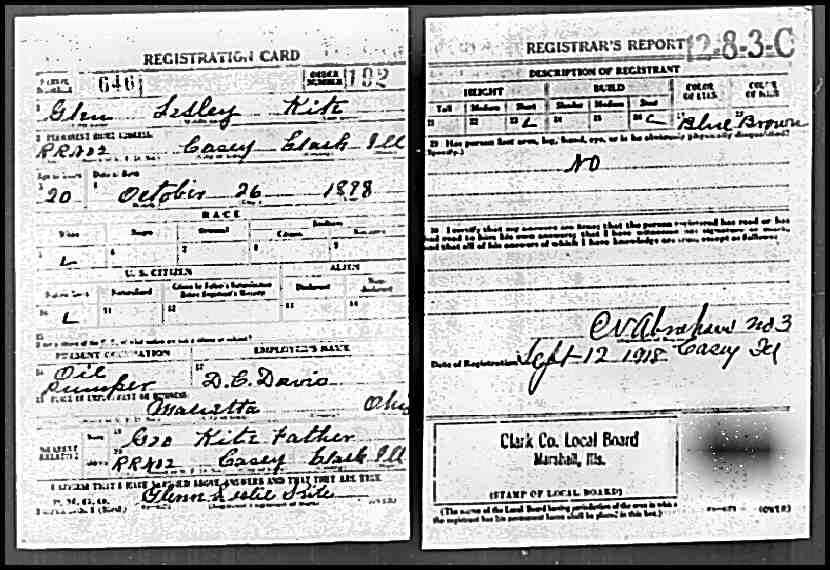 REGISTRATION CARD
SERIAL NUMBER 646 ORDER NUMBER 102
1 Glen Lesley Kite
2 PERMANENT HOME ADDRESS
RR No2 Casey Clark Ill
Age in Years Date of Birth
20 October 26 1898
RACE
White Negro Oriental Indian
Citizen
5 6 7 8 9
U. S. CITIZEN ALIEN
Native Born Naturalized Citizen by Father's Naturalization Before Registrant's Majority Declarant Non-declarant
10 11 12 13 14
15
PRESENT OCCUPATION EMPLOYER'S NAME
16 Oil Pumper 17 D. C. Davis
18 PLACE OF EMPLOYMENT OR BUSINESS
Marietta Ohio
NEAREST RELATIVE Name 19 Geo Kite Father
Address 20 RR No2 Casey Clark Ill
I AFFIRM THAT I HAVE VERIFIED ABOVE ANSWERS AND THAT THEY ARE TRUE
Glenn Leslie Kite
(OVER)
REGISTRAR'S REPORT 12-8-3-C
DESCRIPTION OF REGISTRANT
HEIGHT BUILD COLOR OF EYES COLOR OF HAIR
Tall Medium Short Slender Medium Stout
21 22 23 24 25 26 27 Blue 28 Brown
29 Has person lost arm, leg, hand, eye, or is he obviously physically disqualified? (Specify.)
NO
30 I certify that my answers are true; that the person registered has read or has had read to him his own answers; that I have witnessed his signature or mark, and that all of his answers of which I have knowledge are true, except as follows:
CV Abraham no 3
Date of Registration Sept 12 1918 Casey Ill
Clark Co. Local Board
Marshall, Ills.
(STAMP OF LOCAL BOARD)
(The stamp of the Local Board having jurisdiction of the area in which the registrant has his permanent home shall be placed in this box.)
(OVER)